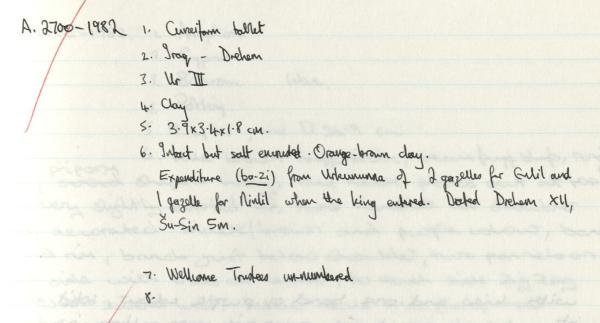 A. 2700-1982 1. Cuneiform tablet
2. Iraq - Drehem
3. Ur III
4. Clay
5. 3.9x3.4x1.8 cm.
6. Intact but salt encrusted. Orange-brown clay.
Expenditure (ba-zi) from of 2 gazelles for Enlil and
1 gazelle for Ninlil when the king entered. Dated Drehem XII,
Šu-Sin 5m.
7. Wellcome Trustees un-numbered
8.